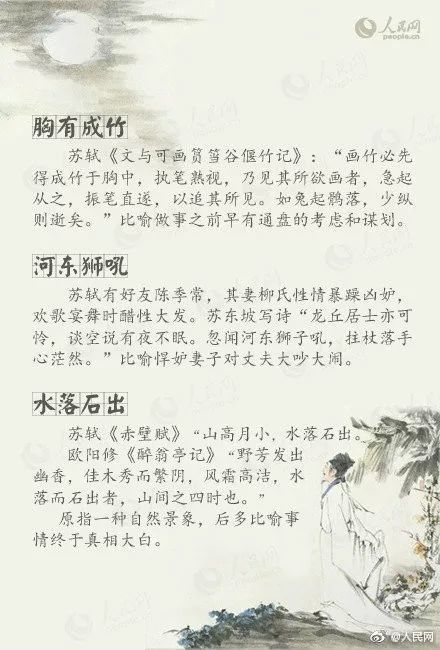 人民网
people.cn
胸有成竹
苏轼《文与可画筼筜谷偃竹记》：“画竹必先
得成竹于胸中，执笔熟视，乃见其所欲画者，急起
从之，振笔直遂，以追其所见。如兔起鹘落，少纵
则逝矣。”比喻做事之前早有通盘的考虑和谋划。
河东狮吼
苏轼有好友陈季常，其妻柳氏性情暴躁凶妒，
欢歌宴舞时醋性大发。苏东坡写诗“龙丘居士亦可
怜，谈空说有夜不眠。忽闻河东狮子吼，拄杖落手
心茫然。”比喻悍妒妻子对丈夫大吵大闹。
水落石出
苏轼《赤壁赋》“山高月小，水落石出。
欧阳修《醉翁亭记》“野芳发出
幽香，佳木秀而繁阴，风霜高洁，水
落而石出者，山间之四时也。”
原指一种自然景象，后多比喻事
情终于真相大白。
@人民网